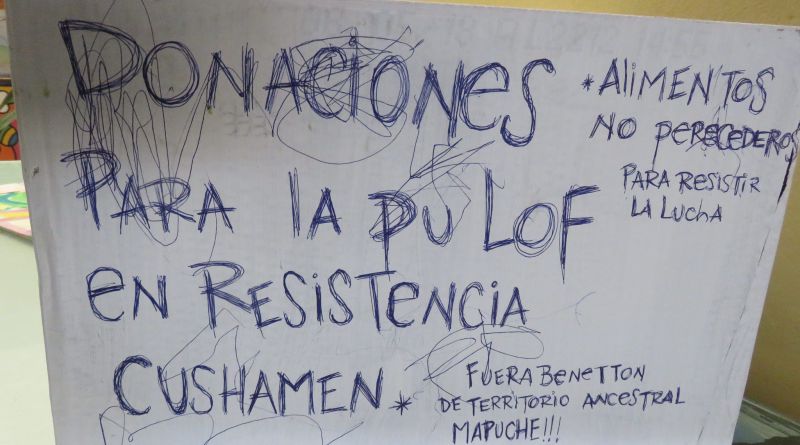 DONACIONES
PARA LA PU LOF
EN RESISTENCIA
CUSHAMEN *
* ALIMENTOS
NO PERECEDEROS
PARA RESISTIR
LA LUCHA
FUERA BENETTON
DE TERRITORIO ANCESTRAL
MAPUCHE!!!